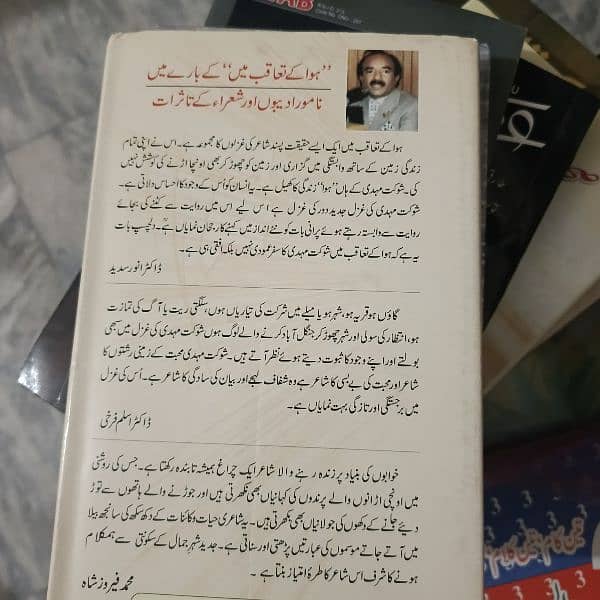 "ہوا کے تعاقب میں" کے بارے میں
نامور ادیبوں اور شعراء کے تاثرات
ہوا کے تعاقب میں ایک ایسے حقیقت پسند شاعر کی غزلوں کا مجموعہ ہے۔ اس نے اپنی تمام
زندگی زمین کے ساتھ وابستگی میں گزاری اور زمین کو چھوڑ کر کبھی اونچا اڑنے کی کوشش نہیں
کی۔ شوکت مہدی کے ہاں "ہوا" زندگی کا کھیل ہے۔ یہ انسان کو اُس کے وجود کا احساس دلاتی ہے۔
شوکت مہدی کی غزل جدید دور کی غزل ہے اس لیے اس میں روایت سے کٹنے کی بجائے
روایت سے وابستہ رہتے ہوئے پرانی بات کو نئے انداز میں کہنے کا رجحان نمایاں ہے۔ دلچسپ بات
یہ ہے کہ ہوا کے تعاقب میں شوکت مہدی کا سفر عمودی نہیں بلکہ افقی ہی ہے۔
ڈاکٹر انور سدید
گاؤں ہو قریہ ہو، شہر ہو یا میلے میں شرکت کی تیاریاں ہوں، سلگتی ریت یا آگ کی تمازت
ہو، انتظار کی سولی اور شہر چھوڑ کر جنگل آباد کرنے والے لوگ ہوں شوکت مہدی کی غزل میں سبھی
بولتے اور اپنے وجود کا ثبوت دیتے ہوئے نظر آتے ہیں۔ شوکت مہدی محبت کے زمینی رشتوں کا
شاعر اور محبت کی بے بسی کا شاعر ہے وہ شفاف لہجے اور بیان کی سادگی کا شاعر ہے۔ اُس کی غزل
میں برجستگی اور تازگی بہت نمایاں ہے۔
ڈاکٹر اسلم فرخی
خوابوں کی بنیاد پر زندہ رہنے والا شاعر ایک چراغ ہمیشہ تابندہ رکھتا ہے۔ جس کی روشنی
میں اونچی اڑانوں والے پرندوں کی کہانیاں بھی نکھرتی ہیں اور جوڑنے والے ہاتھوں سے توڑ
دیئے جانے کے دکھوں کی جولانیاں بھی نکھرتی ہیں۔ یہ شاعری حیات و کائنات کے دکھ سکھ کی سانجھ بیلا
میں آتے جاتے موسموں کی عبارتیں پڑھتی اور سناتی ہے۔ جدید شہرِ جمال کے سکوتی سے ہمکلام
ہونے کا شرف اس شاعر کا طرۂ امتیاز بنتا ہے۔
محمد فیروز شاہ